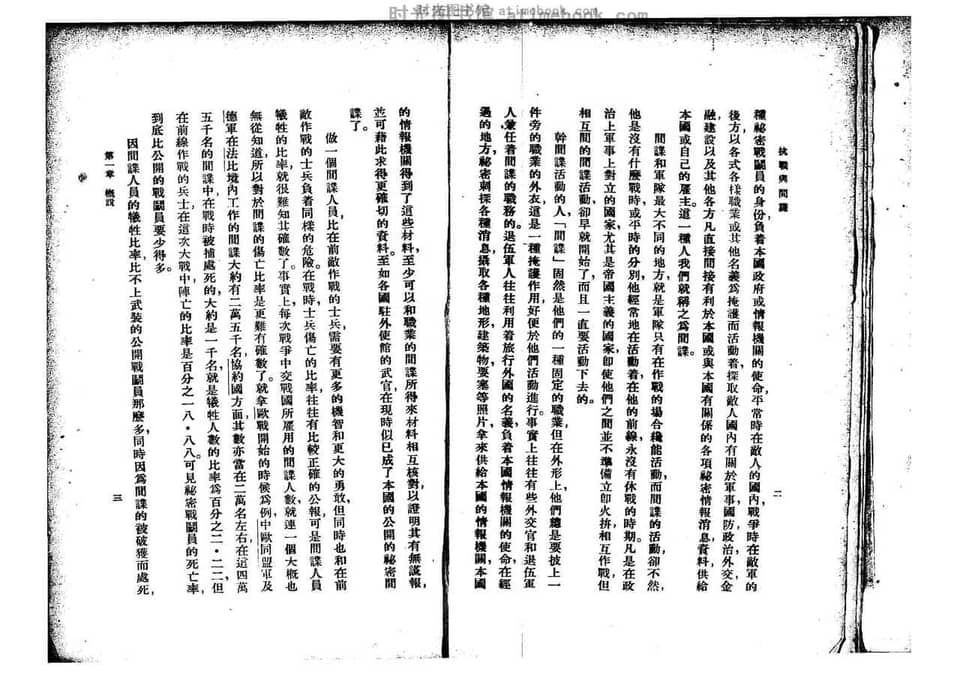 时光图书馆 atimebook.com
抗戰與間諜
二
種祕密戰鬭員的身份負着本國政府或情報機關的使命平常時在敵人的國內戰爭時在敵軍的
後方以各式各樣職業或其他名義爲掩護而活動着探取敵人國內有關於軍事國防政治外交金
融建設以及其他各方凡直接間接有利於本國或與本國有關係的各項秘密情報消息資料供給
本國或自己的雇主。這一種人我們就稱之爲間諜。
間諜和軍隊最大不同的地方就是軍隊只有在作戰的場合纔能活動而間諜的活動卻不然,
他是沒有什麼戰時或平時的分別他經常地在活動着在他的前線永沒有休戰的時期。凡是在政
治上軍事上對立的國家尤其是帝國主義的國家卽使他們之間並不準備立卽火拚相互作戰但
相互間的間諜活動卻早就開始了而且一直要活動下去的。
幹間諜活動的人「間諜」固然是他們的一種固定的職業但在外形上他們總是要披上一
件旁的職業的外衣這是一種掩護作用好便於他們活動進行。事實上往往有些外交官和退伍軍
人兼任着間諜的職務的。退伍軍人往往利用着旅行外國的名義負着本國情報機關的使命在經
過的地方祕密刺探各種消息,攝取各種地形,建築物,要塞等照片,拿來供給本國的情報機關,本國
的情報機關得到了這些材料至少可以和職業的間諜所得來材料相互核對以證明其有無謊報,
並可藉此求得更確切的資料至如各國駐外使館的武官在現時似已成了本國的公開的祕密間
諜了。
做一個間諜人員比在前敵作戰的士兵,需要有更多的機智和更大的勇敢但同時也和在前
敵作戰的士兵負着同樣的危險。在戰時士兵傷亡的比率往往有比較正確的公報可是間諜人員
犧牲的比率就很難知其確數了。事實上每次戰爭中交戰國所雇用的間諜人數就連一個大槪也
無從知道所以對於間諜的傷亡比率是更難有確數了。就拿歐戰開始的時候爲例中歐同盟軍及
德軍在法比境內工作的間諜大約有二萬五千名,協約國方面其數亦當在二萬名左右在這四萬
五千名的間諜中在戰時被捕處死的大約是一千名就是犧牲人數的比率爲百分之二·二二但
在前線作戰的兵士在這次大戰中陣亡的比率是百分之一八·八八。可見祕密戰鬭員的死亡率,
到底比公開的戰鬭員要少得多。
因間諜人員的犧牲比率比不上武裝的公開戰鬭員那麼多同時因爲間諜的被破獲而處死,
第一章 槪說
三